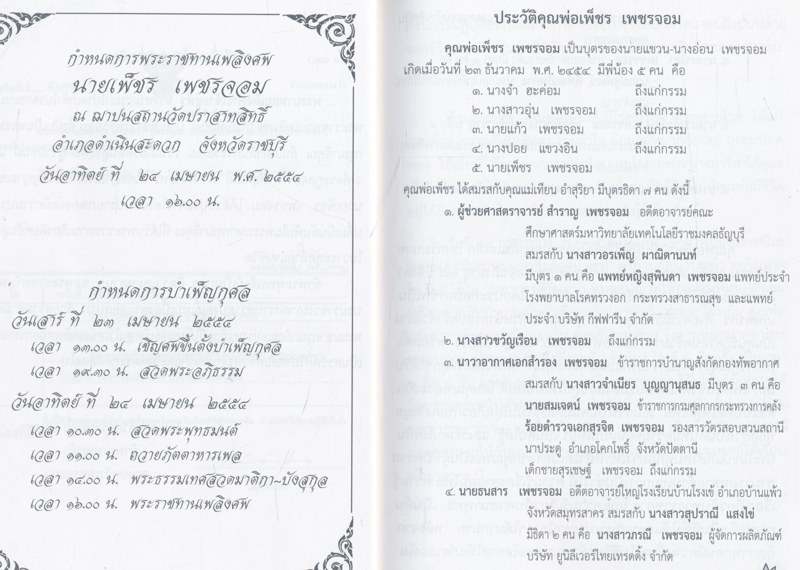 กำหนดการพระราชทานเพลิงศพ
นายเพ็ชร เพชรจอม
ณ ฌาปนสถานวัดปราสาทสิทธิ์
อำเภอดำเนินสะดวก จังหวัดราชบุรี
วันอาทิตย์ ที่ ๒๔ เมษายน พ.ศ. ๒๕๕๔
เวลา ๑๖.๐๐ น.
กำหนดการบำเพ็ญกุศล
วันเสาร์ ที่ ๒๓ เมษายน ๒๕๕๔
เวลา ๑๓.๐๐ น. เชิญศพขึ้นตั้งบำเพ็ญกุศล
เวลา ๑๙.๓๐ น. สวดพระอภิธรรม
วันอาทิตย์ ที่ ๒๔ เมษายน ๒๕๕๔
เวลา ๑๐.๓๐ น. สวดพระพุทธมนต์
เวลา ๑๑.๐๐ น. ถวายภัตตาหารเพล
เวลา ๑๔.๐๐ น. พระธรรมเทศสวดมาติกา~บังสุกุล
เวลา ๑๖.๐๐ น. พระราชทานเพลิงศพ
ประวัติคุณพ่อเพ็ชร เพชรจอม
คุณพ่อเพ็ชร เพชรจอม เป็นบุตรของนายแขวน-นางอ่อน เพชรจอม
เกิดเมื่อวันที่ ๒๓ ธันวาคม พ.ศ. ๒๔๕๔ มีพี่น้อง ๕ คน คือ
๑. นางจำ ฮะค่อม ถึงแก่กรรม
๒. นางสาวอุ่น เพชรจอม ถึงแก่กรรม
๓. นายแก้ว เพชรจอม ถึงแก่กรรม
๔. นางปอย แขวงอิน ถึงแก่กรรม
๕. นายเพ็ชร เพชรจอม
คุณพ่อเพ็ชร ได้สมรสกับคุณแม่เทียน อำสุริยา มีบุตรธิดา ๗ คน ดังนี้
๑. ผู้ช่วยศาสตราจารย์ สำราญ เพชรจอม อดีตอาจารย์คณะ
ศึกษาศาสตร์มหาวิทยาลัยเทคโนโลยีราชมงคลธัญบุรี
สมรสกับ นางสาวอรเพ็ญ ผาณิตานนท์
มีบุตร ๑ คน คือ แพทย์หญิงสุพินดา เพชรจอม แพทย์ประจำ
โรงพยาบาลโรคทรวงอก กระทรวงสาธารณสุข และแพทย์
ประจำ บริษัท กิฟฟารีน จำกัด
๒. นางสาวขวัญเรือน เพชรจอม ถึงแก่กรรม
๓. นาวาอากาศเอกสำรอง เพชรจอม ข้าราชการบำนาญสังกัดกองทัพอากาศ
สมรสกับ นางสาวจำเนียร บุญญานุสนธ มีบุตร ๓ คน คือ
นายสมเจตน์ เพชรจอม ข้าราชการกรมศุลกากรกระทรวงการคลัง
ร้อยตำรวจเอกสุรจิต เพชรจอม รองสารวัตรสอบสวนสถานี
นาประดู่ อำเภอโคกโพธิ์ จังหวัดปัตตานี
เด็กชายสุรเชษฐ์ เพชรจอม ถึงแก่กรรม
๔. นายธนสาร เพชรจอม อดีตอาจารย์ใหญ่โรงเรียนบ้านโรงเข้ อำเภอบ้านแพ้ว
จังหวัดสมุทรสาคร สมรสกับ นางสาวสุปราณี แสงไข่
มีธิดา ๒ คน คือ นางสาวภรณี เพชรจอม ผู้จัดการผลิตภัณฑ์
บริษัท ยูนิลีเวอร์ไทยเทรดดิ้ง จำกัด